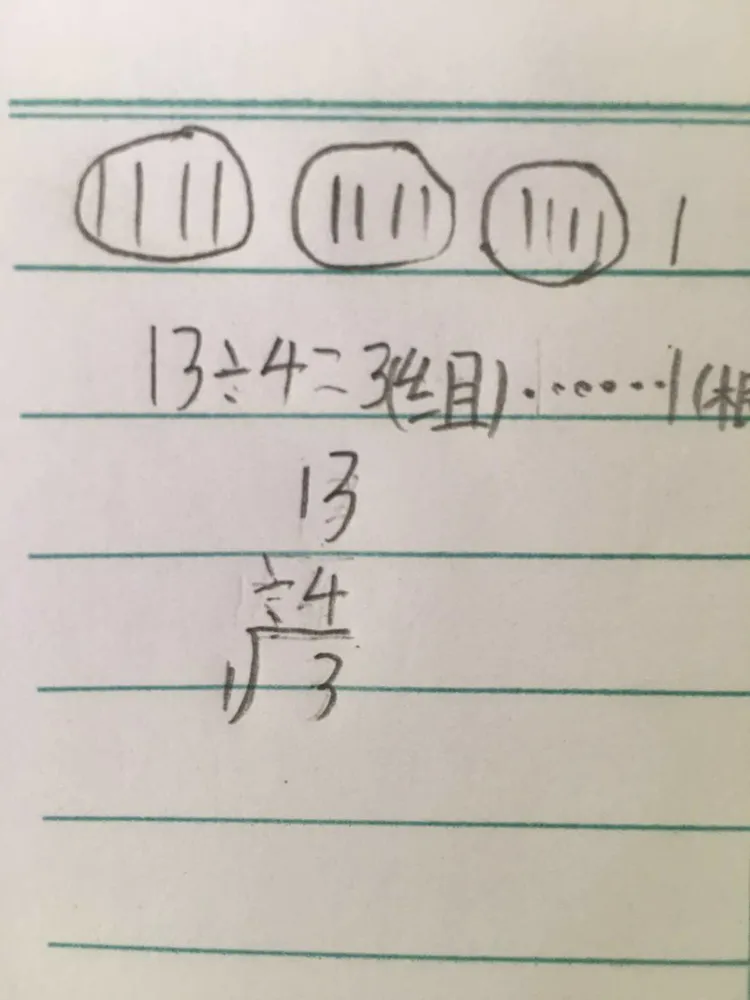 13÷4=3(组)……1(根
13
÷4
1 3